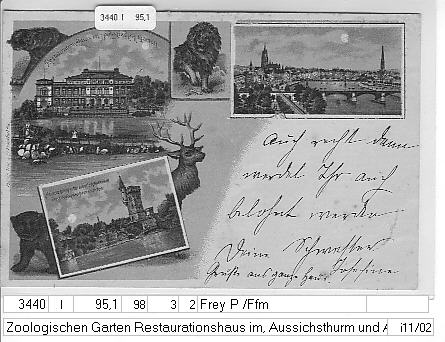 3440 I 95,1
Auch recht dann
werdet Ihr auch
belohnt werden
Deine Schwester
Grüße aus ganze Haus. Josefine
3440 I 95,1 98 3 2 Frey P /Ffm
Zoologischen Garten Restaurationshaus im, Aussichsthurm und A i11/02